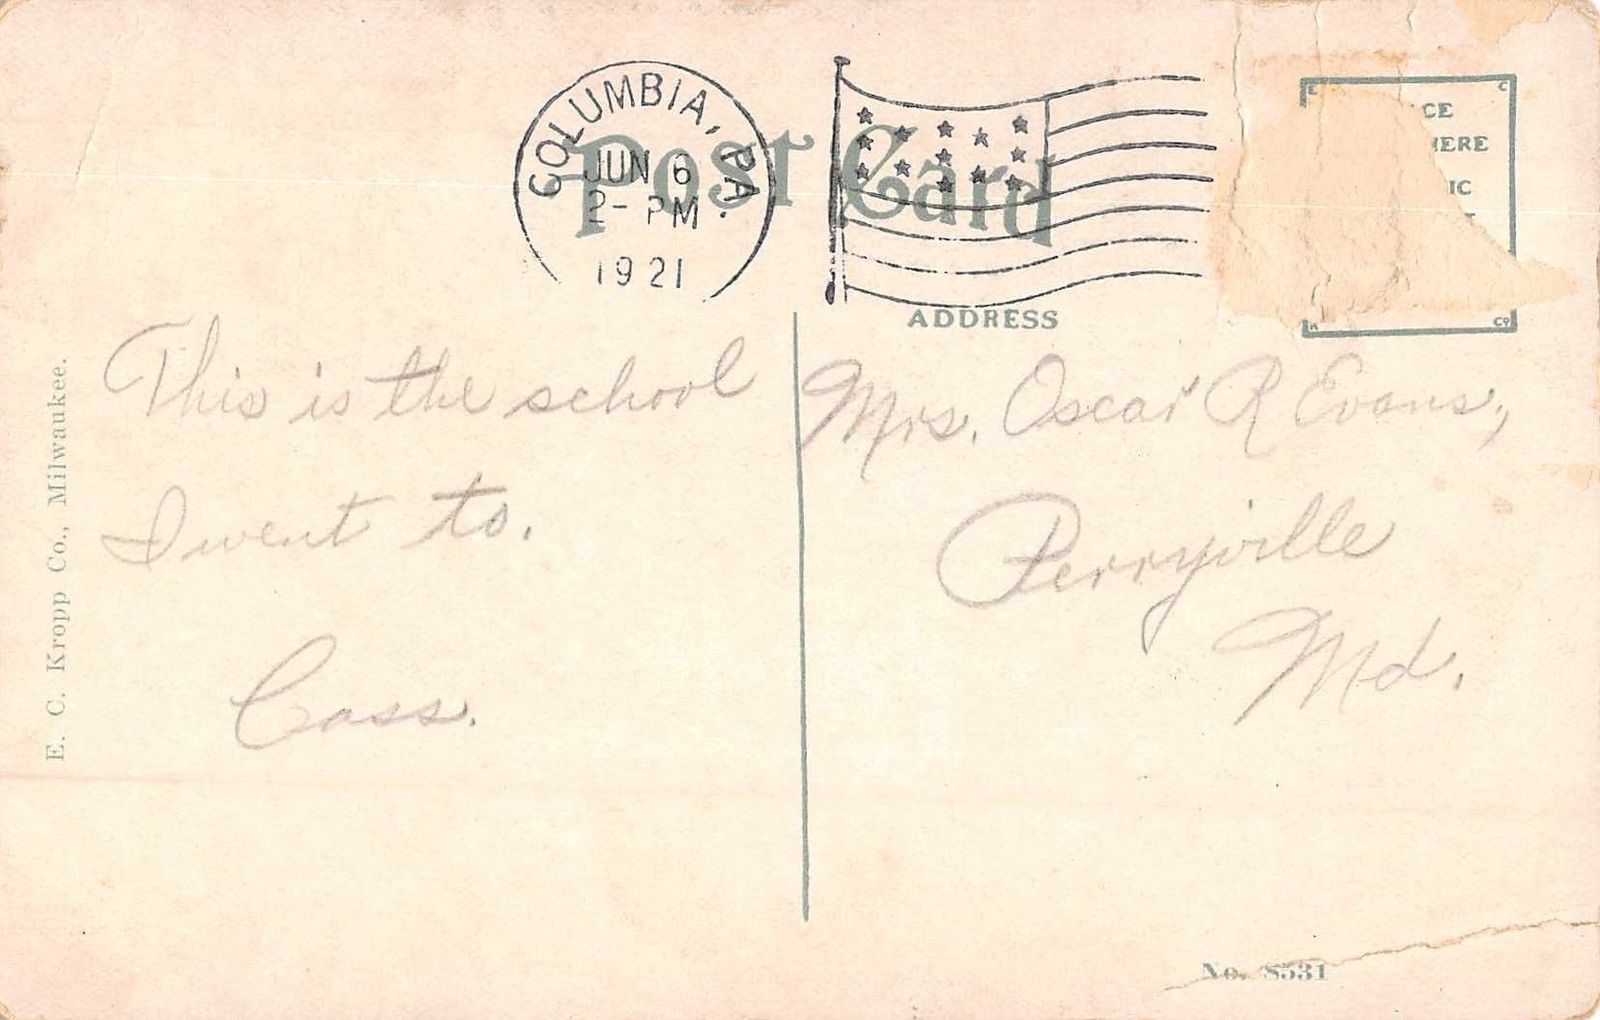 COLUMBIA, PA.
JUN 6
2- PM
1921
Post Card
CE
HERE
IC
E C
K Co
ADDRESS
This is the school
I went to.
Cass.
Mrs. Oscar R Evans,
Perryville
Md.
E. C. Kropp Co., Milwaukee.
No. S531